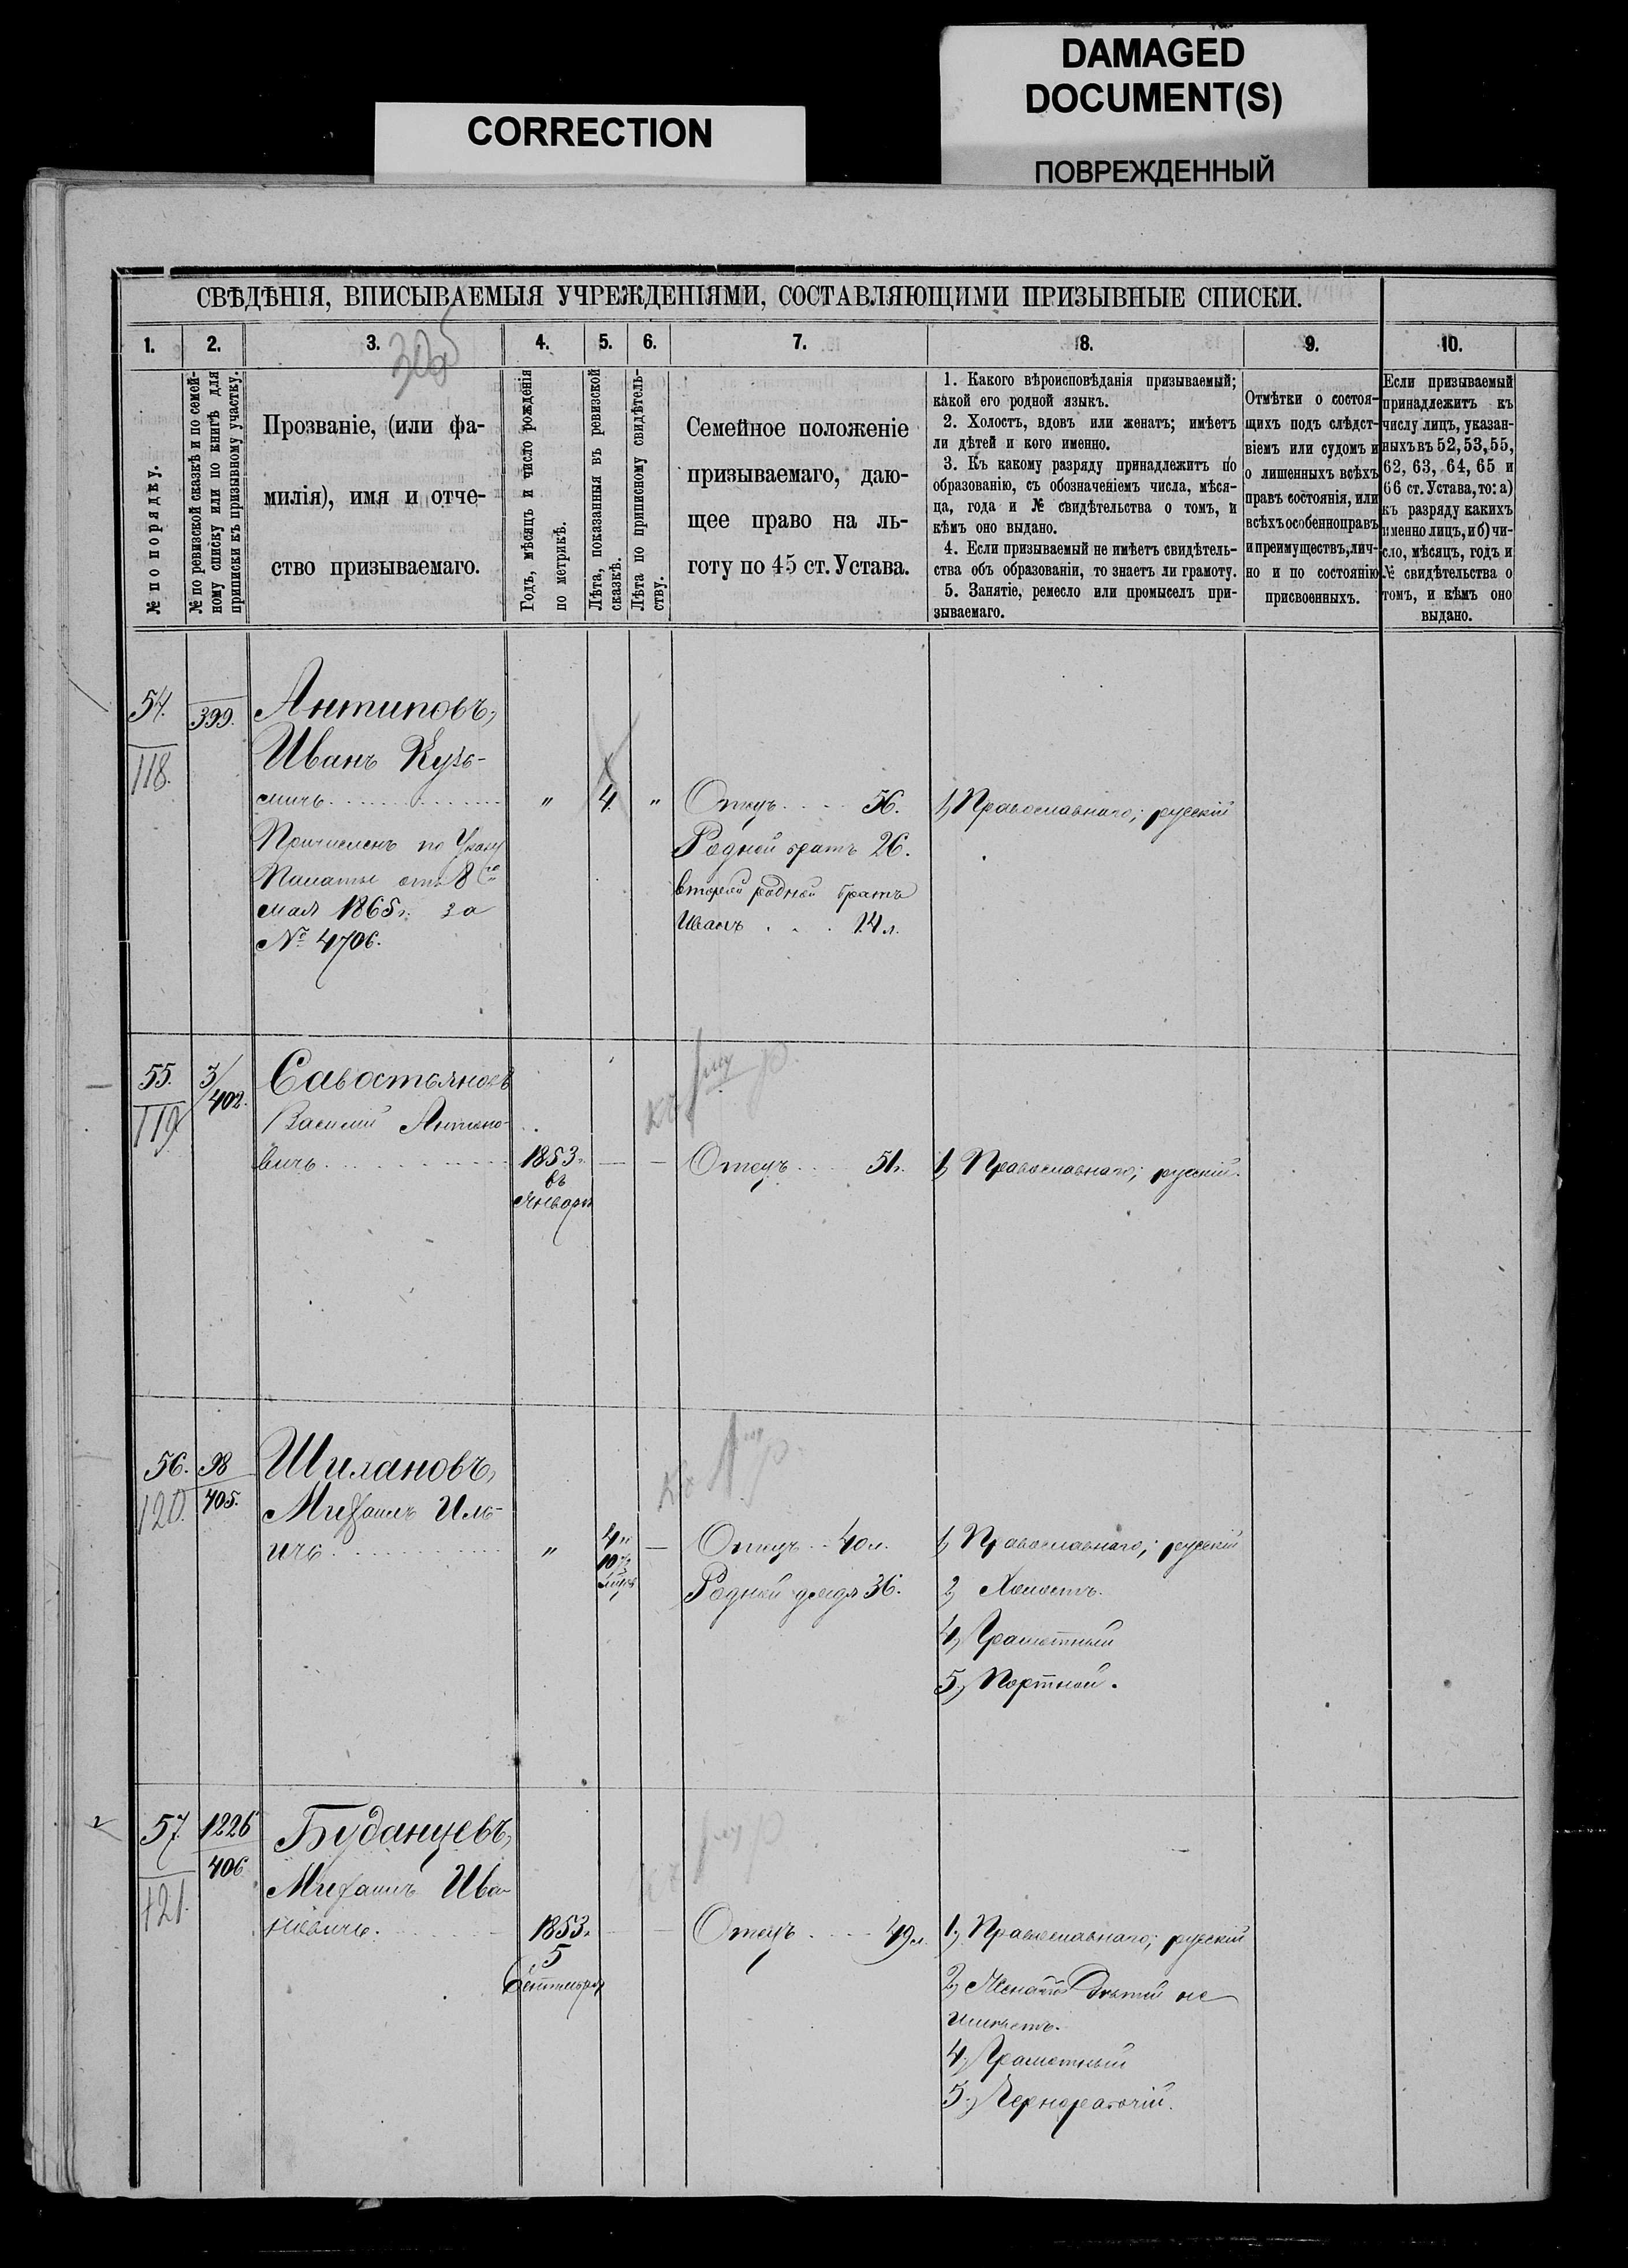 CORRECTION
DAMAGED
DOCUMENT(S)
ПОВРЕЖДЕННЫЙ
СВѢДѢНІЯ, ВПИСЫВАЕМЫЯ УЧРЕЖДЕНІЯМИ, СОСТАВЛЯЮЩИМИ ПРИЗЫВНЫЕ СПИСКИ.
1.
2.
3.
4.
5.
6.
7.
8.
9.
10.
№ по порядку.
№ по ревизской сказкѣ и по семей-
ному списку или по книгѣ для
приписки къ призывному участку.
Прозваніе, (или фа-
милія), имя и отче-
ство призываемаго.
Годъ, мѣсяцъ и число рожденія
по метрикѣ.
Лѣта, показанныя въ ревизской
сказкѣ.
Лѣта по приписному свидѣтель-
ству.
Семейное положеніе
призываемаго, даю-
щее право на ль-
готу по 45 ст. Устава.
1. Какого вѣроисповѣданія призываемый;
какой его родной языкъ.
2. Холостъ, вдовъ или женатъ; имѣетъ
ли дѣтей и кого именно.
3. Къ какому разряду принадлежитъ по
образованію, съ обозначеніемъ числа, мѣся-
ца, года и № свидѣтельства о томъ, и
кѣмъ оно выдано.
4. Если призываемый не имѣетъ свидѣтель-
ства объ образованіи, то знаетъ ли грамоту.
5. Занятіе, ремесло или промыселъ при-
зываемаго.
Отмѣтки о состоя-
щихъ подъ слѣдст-
віемъ или судомъ и
о лишенныхъ всѣхъ
правъ состоянія, или
всѣхъ особенно правъ
и преимуществъ, лич-
но и по состоянію
присвоенныхъ.
Если призываемый
принадлежитъ къ
числу лицъ, указан-
ныхъ въ 52, 53, 55,
62, 63, 64, 65 и
66 ст. Устава, то: а)
къ разряду какихъ
именно лицъ, и б) чи-
сло, мѣсяцъ, годъ и
№ свидѣтельства о
томъ, и кѣмъ оно
выдано.
54.
118.
399.
Антиповъ,
Иванъ Кузь-
мичъ
Причисленъ по Указу
Палаты отъ 8го
мая 1865 г. за
№ 4706.
"
4.
"
Отецъ 56.
Родной братъ 26.
второй родной братъ
Иванъ 14 л.
1, Православнаго; русскій
55.
119
3/402.
Савостьяновъ
Василій Антоно-
вичъ
1853 г.
въ
Январѣ
Отецъ 51.
1, Православнаго; русскій.
56.
120.
98
405.
Шилановъ,
Михаилъ Иль-
ичъ
"
4
10½
Отецъ 40 л.
Родной дядя 36.
1, Православнаго; русскій
2, Холостъ.
4, Грамотный
5, Портной.
57.
121.
1226
406
Буданцевъ,
Михаилъ Ива-
новичъ.
1853 г.
5
Сентября
Отецъ 49 л.
1, Православнаго; русскій
2, Женатъ Дѣтей не
имѣетъ.
4, Грамотный
5, Чернорабочій.